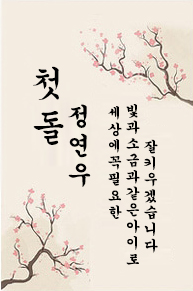 첫돌
정연우
세상에꼭필요한
빛과소금과같은아이로
잘키우겠습니다